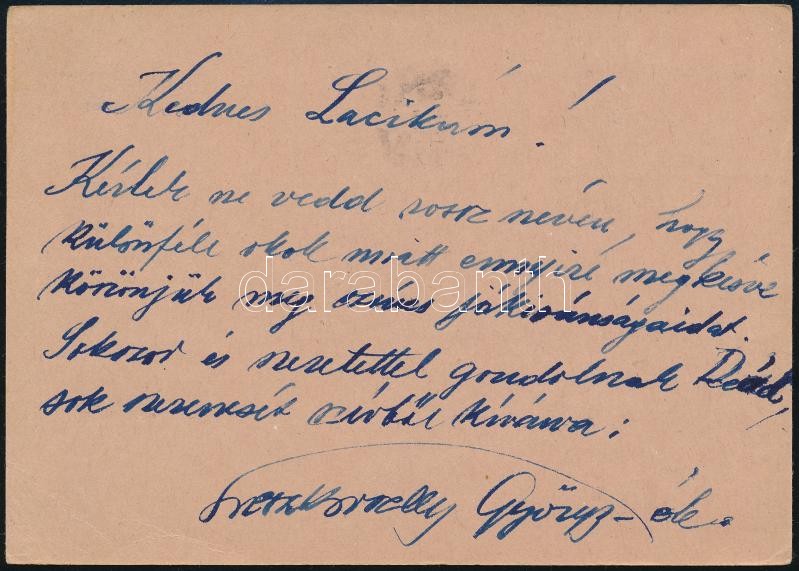 Kedves Lacikám!
Kérlek ne vedd rossz néven, hogy
különféle okok miatt ennyire megkésve
köszönjük meg szíves jókivánságaidat.
Sokszor és szeretettel gondolnak Reád,
sok szerencsét szívből kívánva:
György-ék.
darabanth